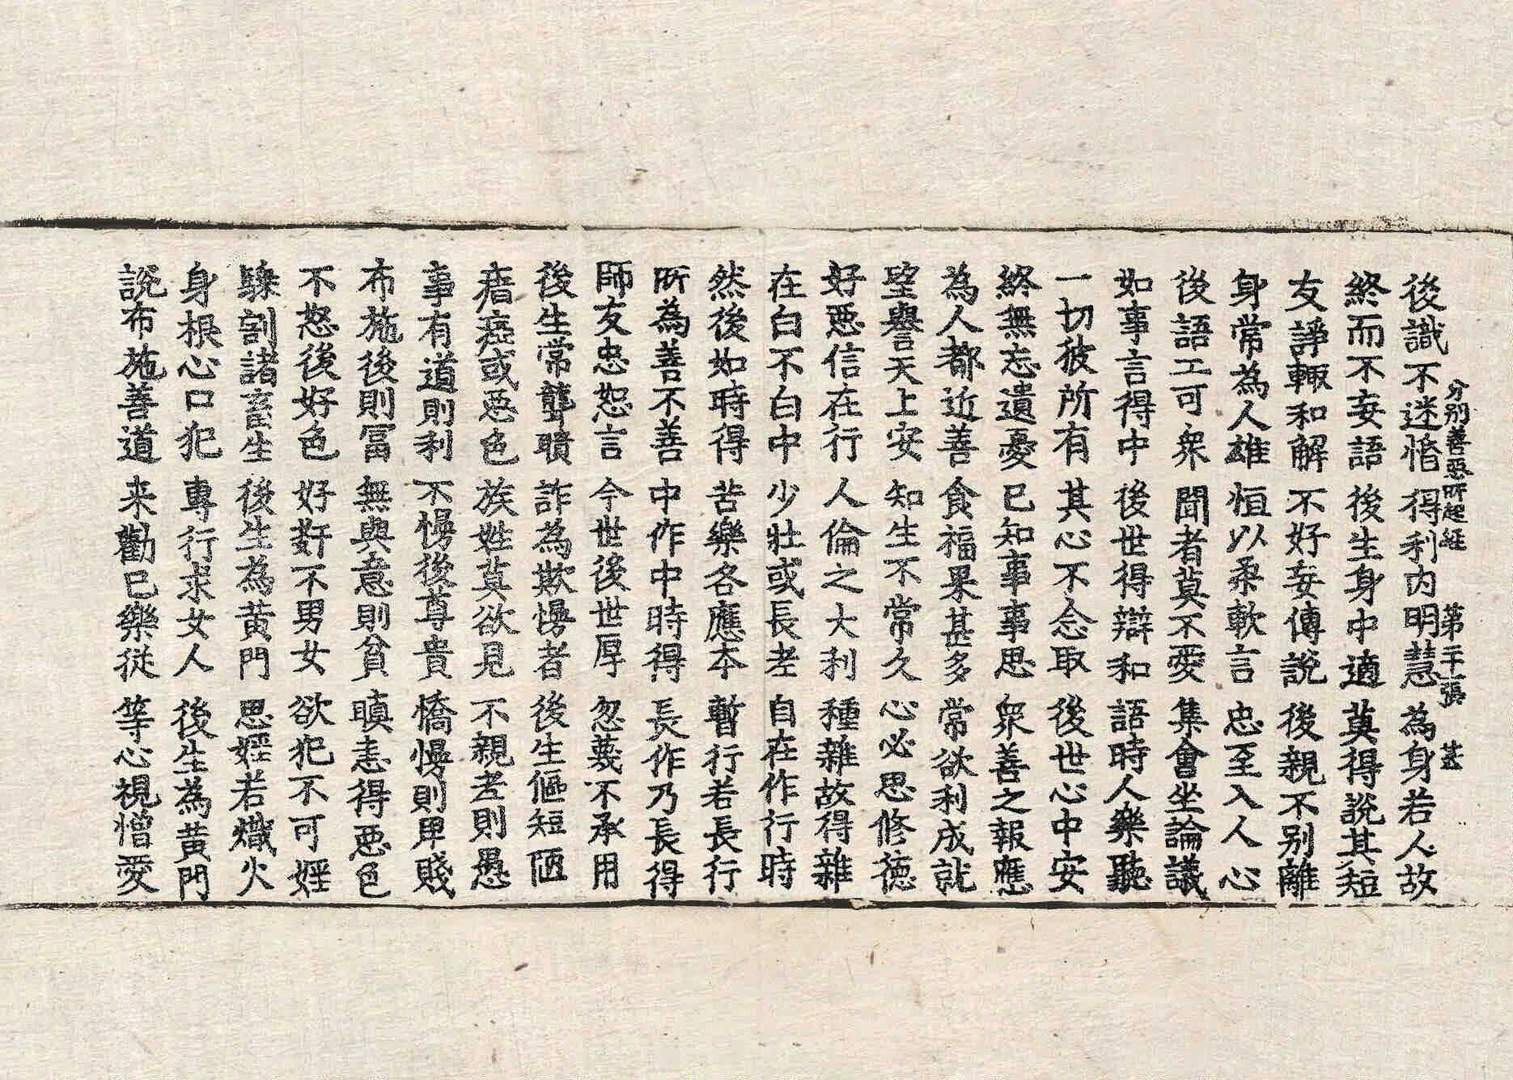 分別善惡所起經　第二十張　甚
後識不迷惛　得利內明慧　為身若人故
終而不妄語　後生身中適　莫得說其短
友諍輙和解　不好妄傳說　後親不別離
身常為人雄　恒以柔軟言　忠至入人心
後語工可衆　聞者莫不愛　集會坐論議
如事言得中　後世得辯和　語時人樂聽
一切彼所有　其心不念取　後世心中安
終無忘遺憂　已知事事思　衆善之報應
為人都近善　食福果甚多　常欲利成就
望譽天上安　知生不常久　心必思修德
好惡信在行　人倫之大利　種雜故得雜
在白不白中　少壯或長老　自在作行時
然後如時得　苦樂各應本　暫行若長行
所為善不善　中作中時得　長作乃長得
師友忠恕言　今世後世厚　忽蔑不承用
後生常聾瞶　詐為欺慢者　後生傴短陋
瘖瘂或惡色　族姓莫欲見　不親老則愚
事有道則利　不慢後尊貴　憍慢則卑賤
布施後則冨　無與意則貧　瞋恚得惡色
不怒後好色　好姧不男女　欲犯不可婬
騬割諸畜生　後生為黄門　思婬若熾火
身根心口犯　專行求女人　後生為黄門
說布施善道　来勸已樂從　等心視憎愛